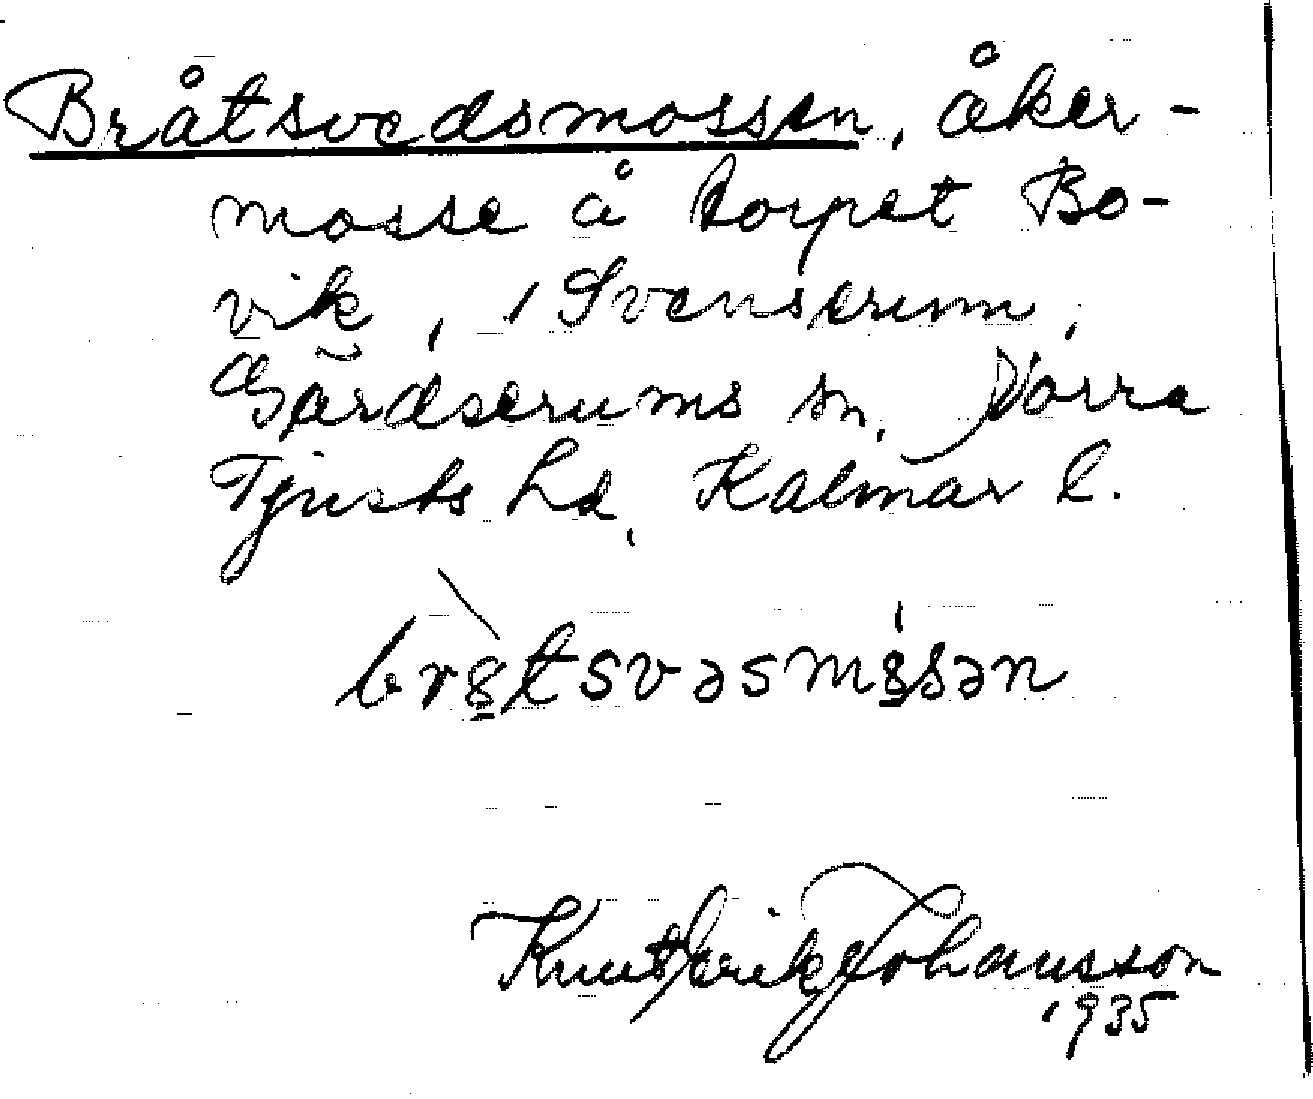 Bråtsvedsmossen, åker-
mosse å torpet Bo-
vik, i Svenserum,
Gärdserums sn, Norra
Tjusts hd, Kalmar l.
Knut Erik Johansson
1935